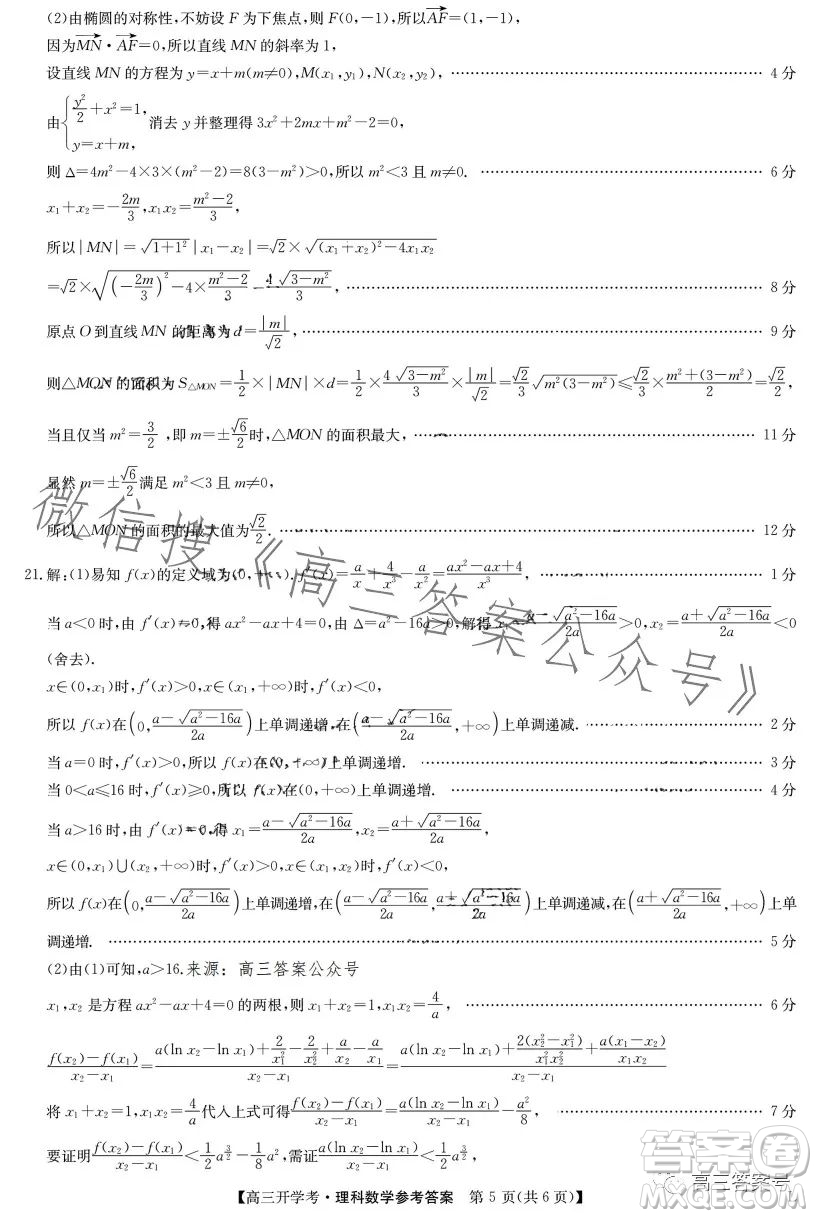 (2)由椭圆的对称性,不妨设 F 为下焦点,则 F(0,-1),所以$\overrightarrow{AF}$=(1,-1),
因为$\overrightarrow{MN}\cdot\overrightarrow{AF}$=0,所以直线 MN 的斜率为 1,
设直线 MN 的方程为 y=x+m(m≠0),M(x₁,y₁),N(x₂,y₂), …… 4 分
由$\begin{cases}\frac{y^2}{2}+x^2=1,\\y=x+m,\end{cases}$消去 y 并整理得 3x²+2mx+m²-2=0,
则 Δ=4m²-4×3×(m²-2)=8(3-m²)>0,所以 m²<3 且 m≠0. …… 6 分
$x_1+x_2=-\frac{2m}{3},x_1x_2=\frac{m^2-2}{3}$,
所以$|MN|=\sqrt{1+1^2}|x_1-x_2|=\sqrt{2}\times\sqrt{(x_1+x_2)^2-4x_1x_2}$
$=\sqrt{2}\times\sqrt{\left(-\frac{2m}{3}\right)^2-4\times\frac{m^2-2}{3}}=\frac{4\sqrt{3-m^2}}{3}$, …… 8 分
原点 O 到直线 MN 的距离为 $d=\frac{|m|}{\sqrt{2}}$, …… 9 分
则△MON 的面积为 $S_{\triangle MON}=\frac{1}{2}\times|MN|\times d=\frac{1}{2}\times\frac{4\sqrt{3-m^2}}{3}\times\frac{|m|}{\sqrt{2}}=\frac{\sqrt{2}}{3}\sqrt{m^2(3-m^2)}\leqslant\frac{\sqrt{2}}{3}\times\frac{m^2+(3-m^2)}{2}=\frac{\sqrt{2}}{2}$,
当且仅当 $m^2=\frac{3}{2}$,即 $m=\pm\frac{\sqrt{6}}{2}$时,△MON 的面积最大, …… 11 分
显然 $m=\pm\frac{\sqrt{6}}{2}$满足 m²<3 且 m≠0,
所以△MON 的面积的最大值为$\frac{\sqrt{2}}{2}$. …… 12 分
21.解:(1)易知 f(x)的定义域为(0,+∞).$f'(x)=\frac{a}{x}+\frac{4}{x^3}-\frac{a}{x^2}=\frac{ax^2-ax+4}{x^3}$, …… 1 分
当 a<0 时,由 f′(x)=0,得 ax²-ax+4=0,由 Δ=a²-16a>0,解得 $x_1=\frac{a-\sqrt{a^2-16a}}{2a}>0,x_2=\frac{a+\sqrt{a^2-16a}}{2a}<0$
(舍去).
x∈(0,x₁)时,f′(x)>0,x∈(x₁,+∞)时,f′(x)<0,
所以 f(x)在$\left(0,\frac{a-\sqrt{a^2-16a}}{2a}\right)$上单调递增,在$\left(\frac{a-\sqrt{a^2-16a}}{2a},+\infty\right)$上单调递减. …… 2 分
当 a=0 时,f′(x)>0,所以 f(x)在(0,+∞)上单调递增. …… 3 分
当 0<a≤16 时,f′(x)≥0,所以 f(x)在(0,+∞)上单调递增. …… 4 分
当 a>16 时,由 f′(x)=0,得 $x_1=\frac{a-\sqrt{a^2-16a}}{2a},x_2=\frac{a+\sqrt{a^2-16a}}{2a}$,
x∈(0,x₁)∪(x₂,+∞)时,f′(x)>0,x∈(x₁,x₂)时,f′(x)<0,
所以 f(x)在$\left(0,\frac{a-\sqrt{a^2-16a}}{2a}\right)$上单调递增,在$\left(\frac{a-\sqrt{a^2-16a}}{2a},\frac{a+\sqrt{a^2-16a}}{2a}\right)$上单调递减,在$\left(\frac{a+\sqrt{a^2-16a}}{2a},+\infty\right)$上单
调递增. …… 5 分
(2)由(1)可知,a>16.来源:高三答案公众号
x₁,x₂ 是方程 ax²-ax+4=0 的两根,则 $x_1+x_2=1,x_1x_2=\frac{4}{a}$, …… 6 分
$\frac{f(x_2)-f(x_1)}{x_2-x_1}=\frac{a(\ln x_2-\ln x_1)+\frac{2}{x_1^2}-\frac{2}{x_2^2}+\frac{a}{x_2}-\frac{a}{x_1}}{x_2-x_1}=\frac{a(\ln x_2-\ln x_1)+\frac{2(x_2^2-x_1^2)}{x_1^2x_2^2}+\frac{a(x_1-x_2)}{x_1x_2}}{x_2-x_1}$
将 $x_1+x_2=1,x_1x_2=\frac{4}{a}$代入上式可得$\frac{f(x_2)-f(x_1)}{x_2-x_1}=\frac{a(\ln x_2-\ln x_1)}{x_2-x_1}-\frac{a^2}{8}$, …… 7 分
要证明$\frac{f(x_2)-f(x_1)}{x_2-x_1}<\frac{1}{2}a^{\frac{3}{2}}-\frac{1}{8}a^2$,即需证$\frac{a(\ln x_2-\ln x_1)}{x_2-x_1}<\frac{1}{2}a^{\frac{3}{2}}$,
【高三开学考·理科数学参考答案 第 5 页(共 6 页)】 L
微信搜《高三答案公众号》
答案圈
高三答案号